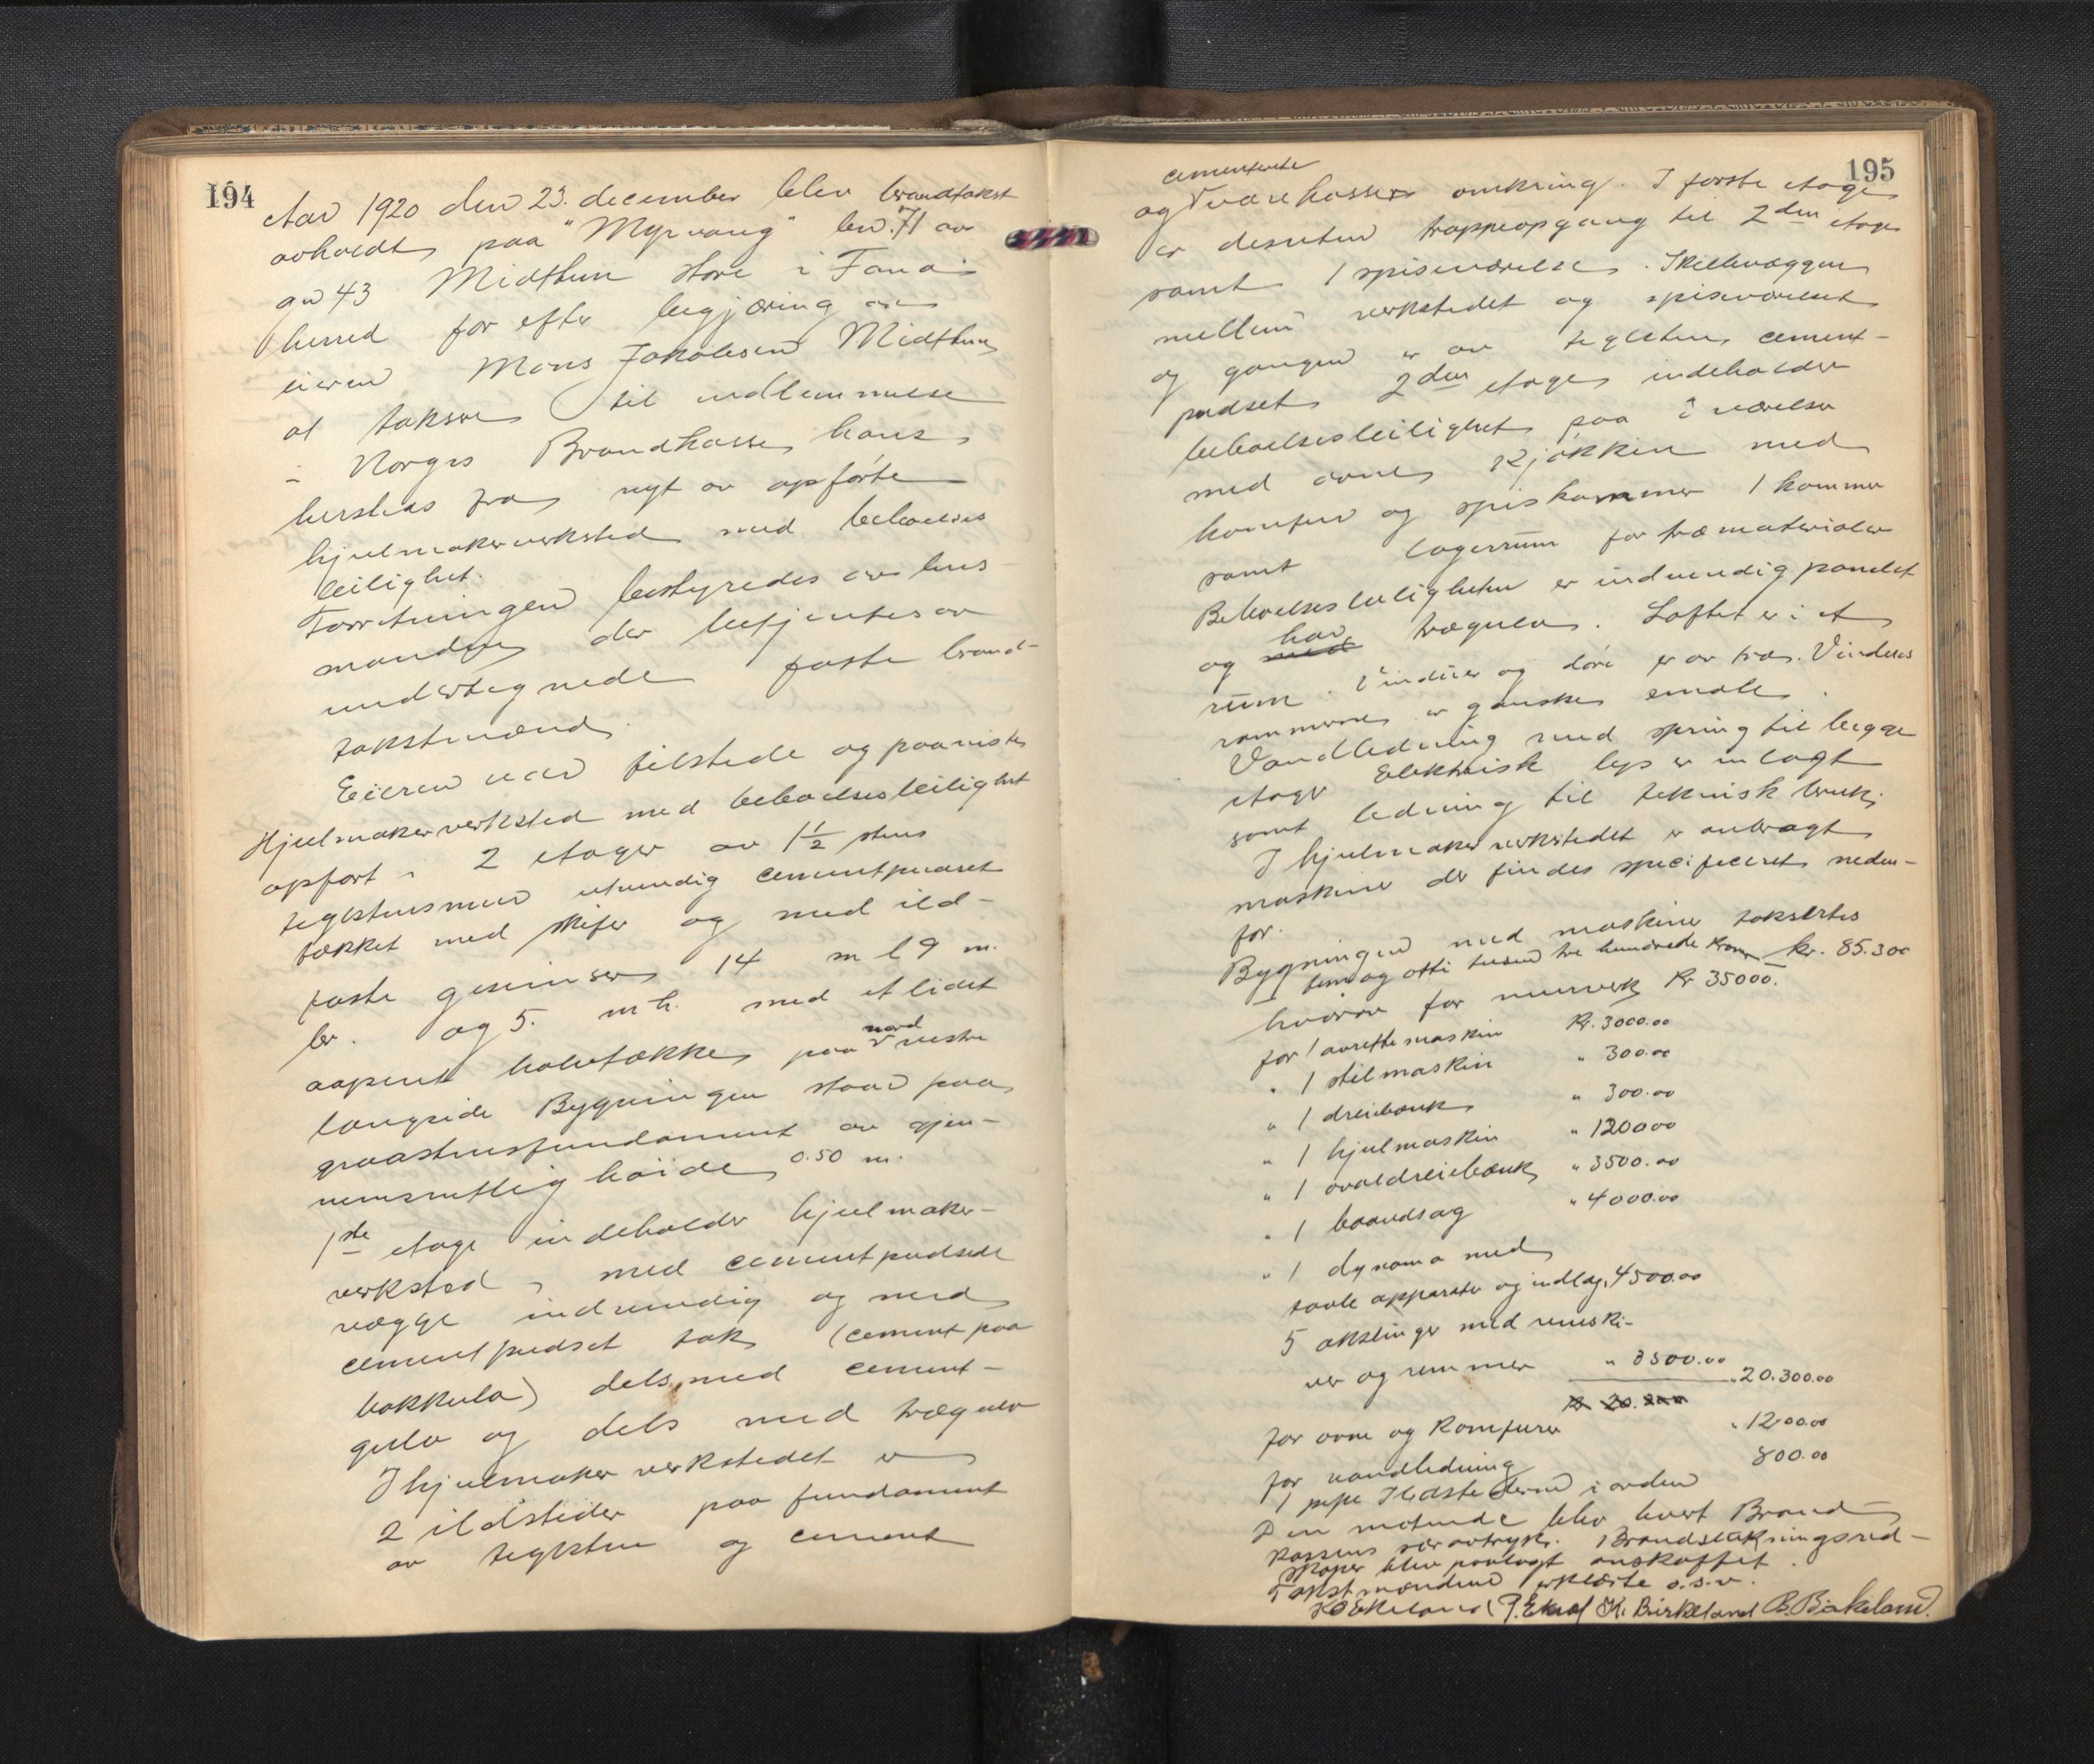 194
Aar 1920 den 23. december blev brandtakst
avholdt paa "Myrvang" bn. 71 av
gn 43 Midthun store i Fana
herred for efter begjæring av
eieren Mons Jakobsen Midthun
at taksere til indlemmelse
i Norges Brandkasse hans
hersteds fra nyt av opførte
hjulmakerverksted med beboelses
leilighet.
Forretningen bestyredes av lens
manden der betjentes av
undertegnede faste brand-
takstmænd.
Eieren var tilstede og paaviste
Hjulmakerverksted med beboelsesleilighet
opført i 2 etager av 1½ stens
teglstensmur utvendig cementpudset
tækket med skifer og med ild-
faste gesimser 14 m l 9 m.
br. og 5. m h. med et lidet
aapent halvtække paa nord vestre
langside Bygningen staar paa
graastensfundament av gjen-
nemsnitlig høide 0.50 m.
1ste etage indeholder hjulmaker-
verksted, med cementpudsede
vægge indvendig og med
cementpudset tak (cement paa
bakkula) dels med cement-
gulv og dels med trægulv
I hjulmakerverkstedet er
2 ildsteder paa fundament
av teglsten og cement
195
cementerte
og murkasser omkring. I første etage
er desuten trappeopgang til 2den etage
samt 1 spiseværelse. Skillevæggen
mellem verkstedet og spiseværelset
og gangen er av teglsten, cement-
pudset 2den etage indeholder
beboelsesleilighet paa 2 værelser
med ovne, kjøkken med
komfur og spiskammer 1 kammer
samt lagerrum for træmaterialer
Beboelsesleiligheten er indvendig panelet
og med har trægulv. Loftet er i et
rum. Vinduer og døre er av træ. Vindues
rammerne er ganske smale.
Vandledning med spring til begge
etager Elektrisk lys er inlagt
samt ledning til teknisk bruk.
I hjulmakerverkstedet er anbragt
maskiner der findes specificeret neden-
for.
Bygningen med maskiner takseredes
fem og otti tusen tre hundrede kroner kr. 85.300
hvorav for murverk Kr 35000.
for 1 avrettemaskin Kr. 3000.00
" 1 stilmaskin " 300.00
" 1 dreiebænk " 300.00
" 1 hjulmaskin " 1200.00
" 1 ovaldreiebænk " 3500.00
" 1 baandsag " 4000.00
" 1 dynamo med
tavle apparater og indlæg. 4500.00
5 akslinger med remski-
ver og remmer " 3500.00
" 20.300.00
for ovne og komfurer " 1200.00
for vandledning 800.00
1 pipe Ildstederne i orden
Den møtende blev levert Brand
kassens særavtryk. Brandslukningsred-
skaper blev paalagt anskaffet.
Takstmændene erklærte o.s.v.
P. Ekrol K. Birkeland B. Birkeland.